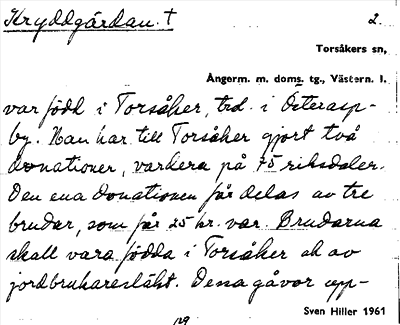 Kryddgårdan. † 2.
Torsåkers sn,
Ångerm. m. doms. tg., Västern. l.
var född i Torsåker, trol. i Österasp-
by. Han har till Torsåker gjort två
donationer, vardera på 75 riksdaler.
Den ena donationen får delas av tre
brudar, som får 25 kr. var. Brudarna
skall vara födda i Torsåker ok av
jordbrukaresläkt. Dena gåvor upp-
Sven Hiller 1961
129